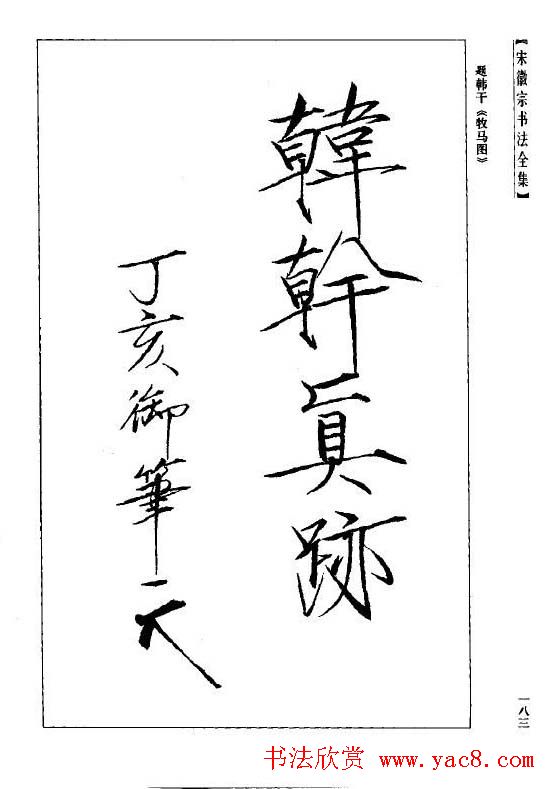 【宋徽宗书法全集】
题韩干《牧马图》
韓幹真跡
丁亥御筆
一八三
书法欣赏 www.yac8.com